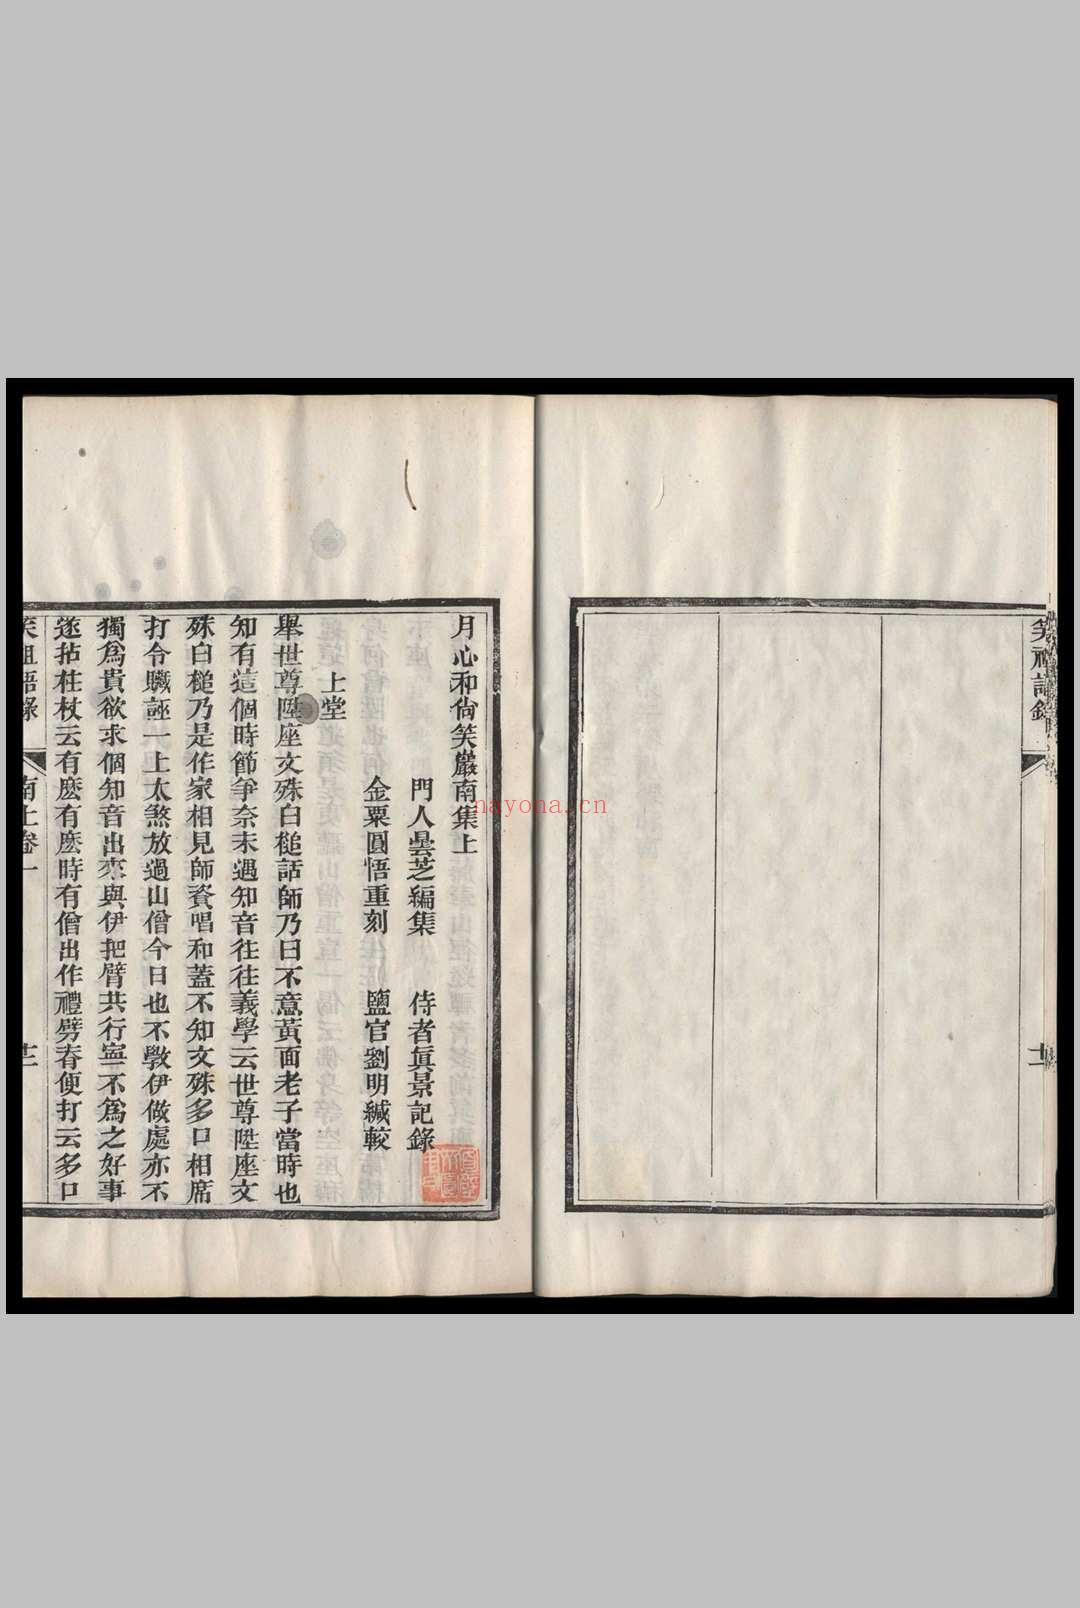 笑祖語錄
十一
月心和尙笑巖南集上
門人曇芝編集 侍者眞景記錄
金粟圓悟重刻 鹽官劉明緘較
上堂
舉世尊陞座文殊白槌話師乃曰不意黃面老子當時也
知有這個時節爭奈未遇知音往往義學云世尊陞座文
殊白槌乃是作家相見師資唱和蓋不知文殊多口相席
打令賺誣一上太煞放過山僧今日也不斆伊做處亦不
獨爲貴欲求個知音出來與伊把臂共行寧不爲之好事
遂拈柱杖云有麽有麽時有僧出作禮劈脊便打云多口
笑祖語錄
南上卷一
nayona.cn